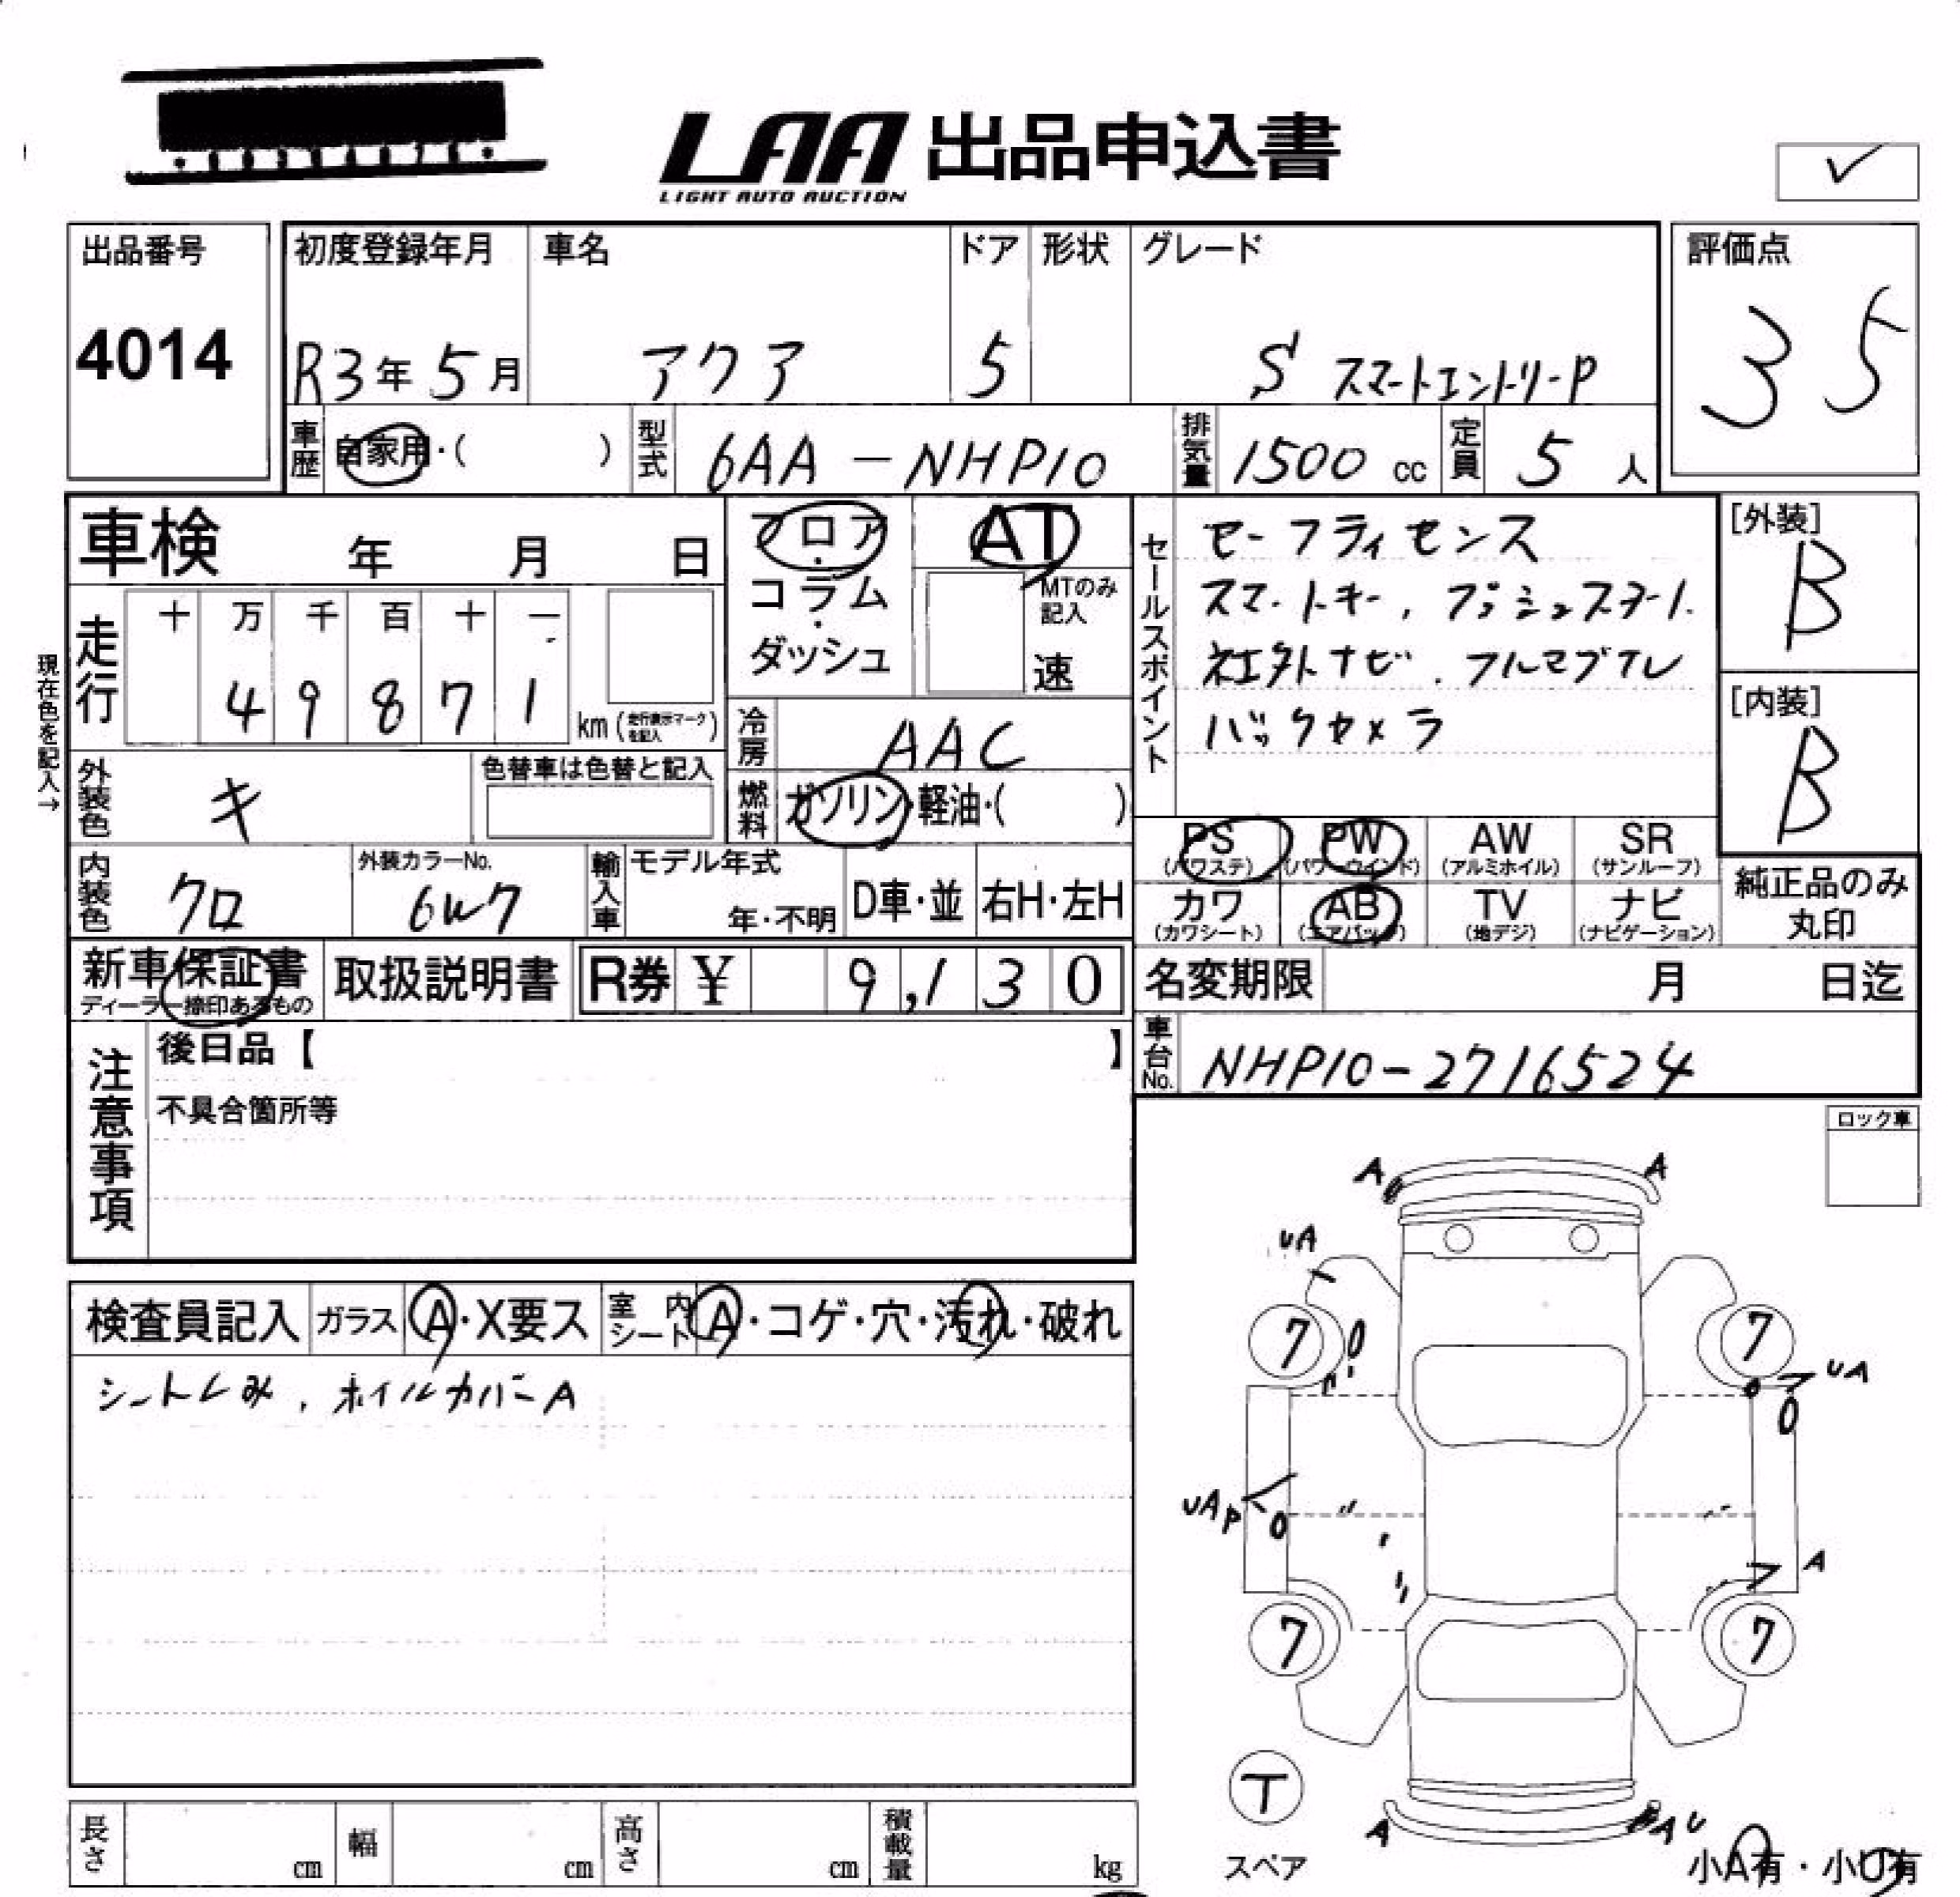 LAA 出品申込書
LIGHT AUTO AUCTION
✓
出品番号
4014
初度登録年月 車名 ドア 形状 グレード
R3年 5月 アクア 5 S スマートエントリーP
評価点
3 5
車歴 自家用・( ) 型式 6AA-NHP10 排気量 1500 cc 定員 5 人
車検 年 月 日
フロア・コラム・ダッシュ
AT
MTのみ記入
速
セールスポイント
セーフティセンス
スマートキー, プッシュスタート
社外ナビ. フルセグTV
バックカメラ
[外装]
B
[内装]
B
現在色を記入→
走行 十 万 千 百 十 一
4 9 8 7 1
km (走行表示マークを記入)
冷房 AAC
燃料 ガソリン・軽油・( )
外装色 キ
色替車は色替と記入
内装色 クロ
外装カラーNo.
6W7
輸入車 モデル年式
年・不明 D車・並 右H・左H
PS (パワステ) PW (パワーウインド) AW (アルミホイル) SR (サンルーフ)
カワ (カワシート) AB (エアバッグ) TV (地デジ) ナビ (ナビゲーション)
純正品のみ
丸印
新車保証書
ディーラー捺印あるもの
取扱説明書
R券 ¥ 9,130
名変期限 月 日迄
車台No. NHP10-2716524
注意事項
後日品【 】
不具合箇所等
ロック車
検査員記入 ガラス A・X要ス 室内シート A・コゲ・穴・汚れ・破れ
シートしみ, ホイルカバーA
A A
UA
7 0 7
UA
0
UAP 0
A
7 7
T
スペア
A AU
小A有・小U有
長さ cm 幅 cm 高さ cm 積載量 kg